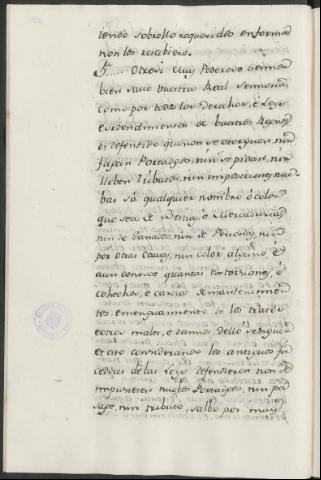 seendo sobrello requeridos en forma
non los rescibiero.
Yt..... Otrosi Muy Poderoso Sennor
bien save vuestra Real Sennoria
como por todos los Derechos, é Leyes
é ordenamientos de vuestros Regnos
es defendido que non se otorguen, nin
fagan Portadgos, nin se pidan, nin
lleben tributos, nin impusiciones nue-
bas só qualquier nombre ó color
que sea de Bestias, é Mercadurias
nin de Ganados, nin de Personas, nin
por otras causas, nin color alguno, é
aun conosce quantas estorsiones, é
cohechos, é carios de mantenimien-
tos, é menguamiento de los tratos
é otros males, é dannos dello se siguen
et esto considerando los antiguos fa-
cedores de las Leys defendieron non se
impusieren nuebos Portadgos, nin pa-
sage, nin tributo, salbo por muy